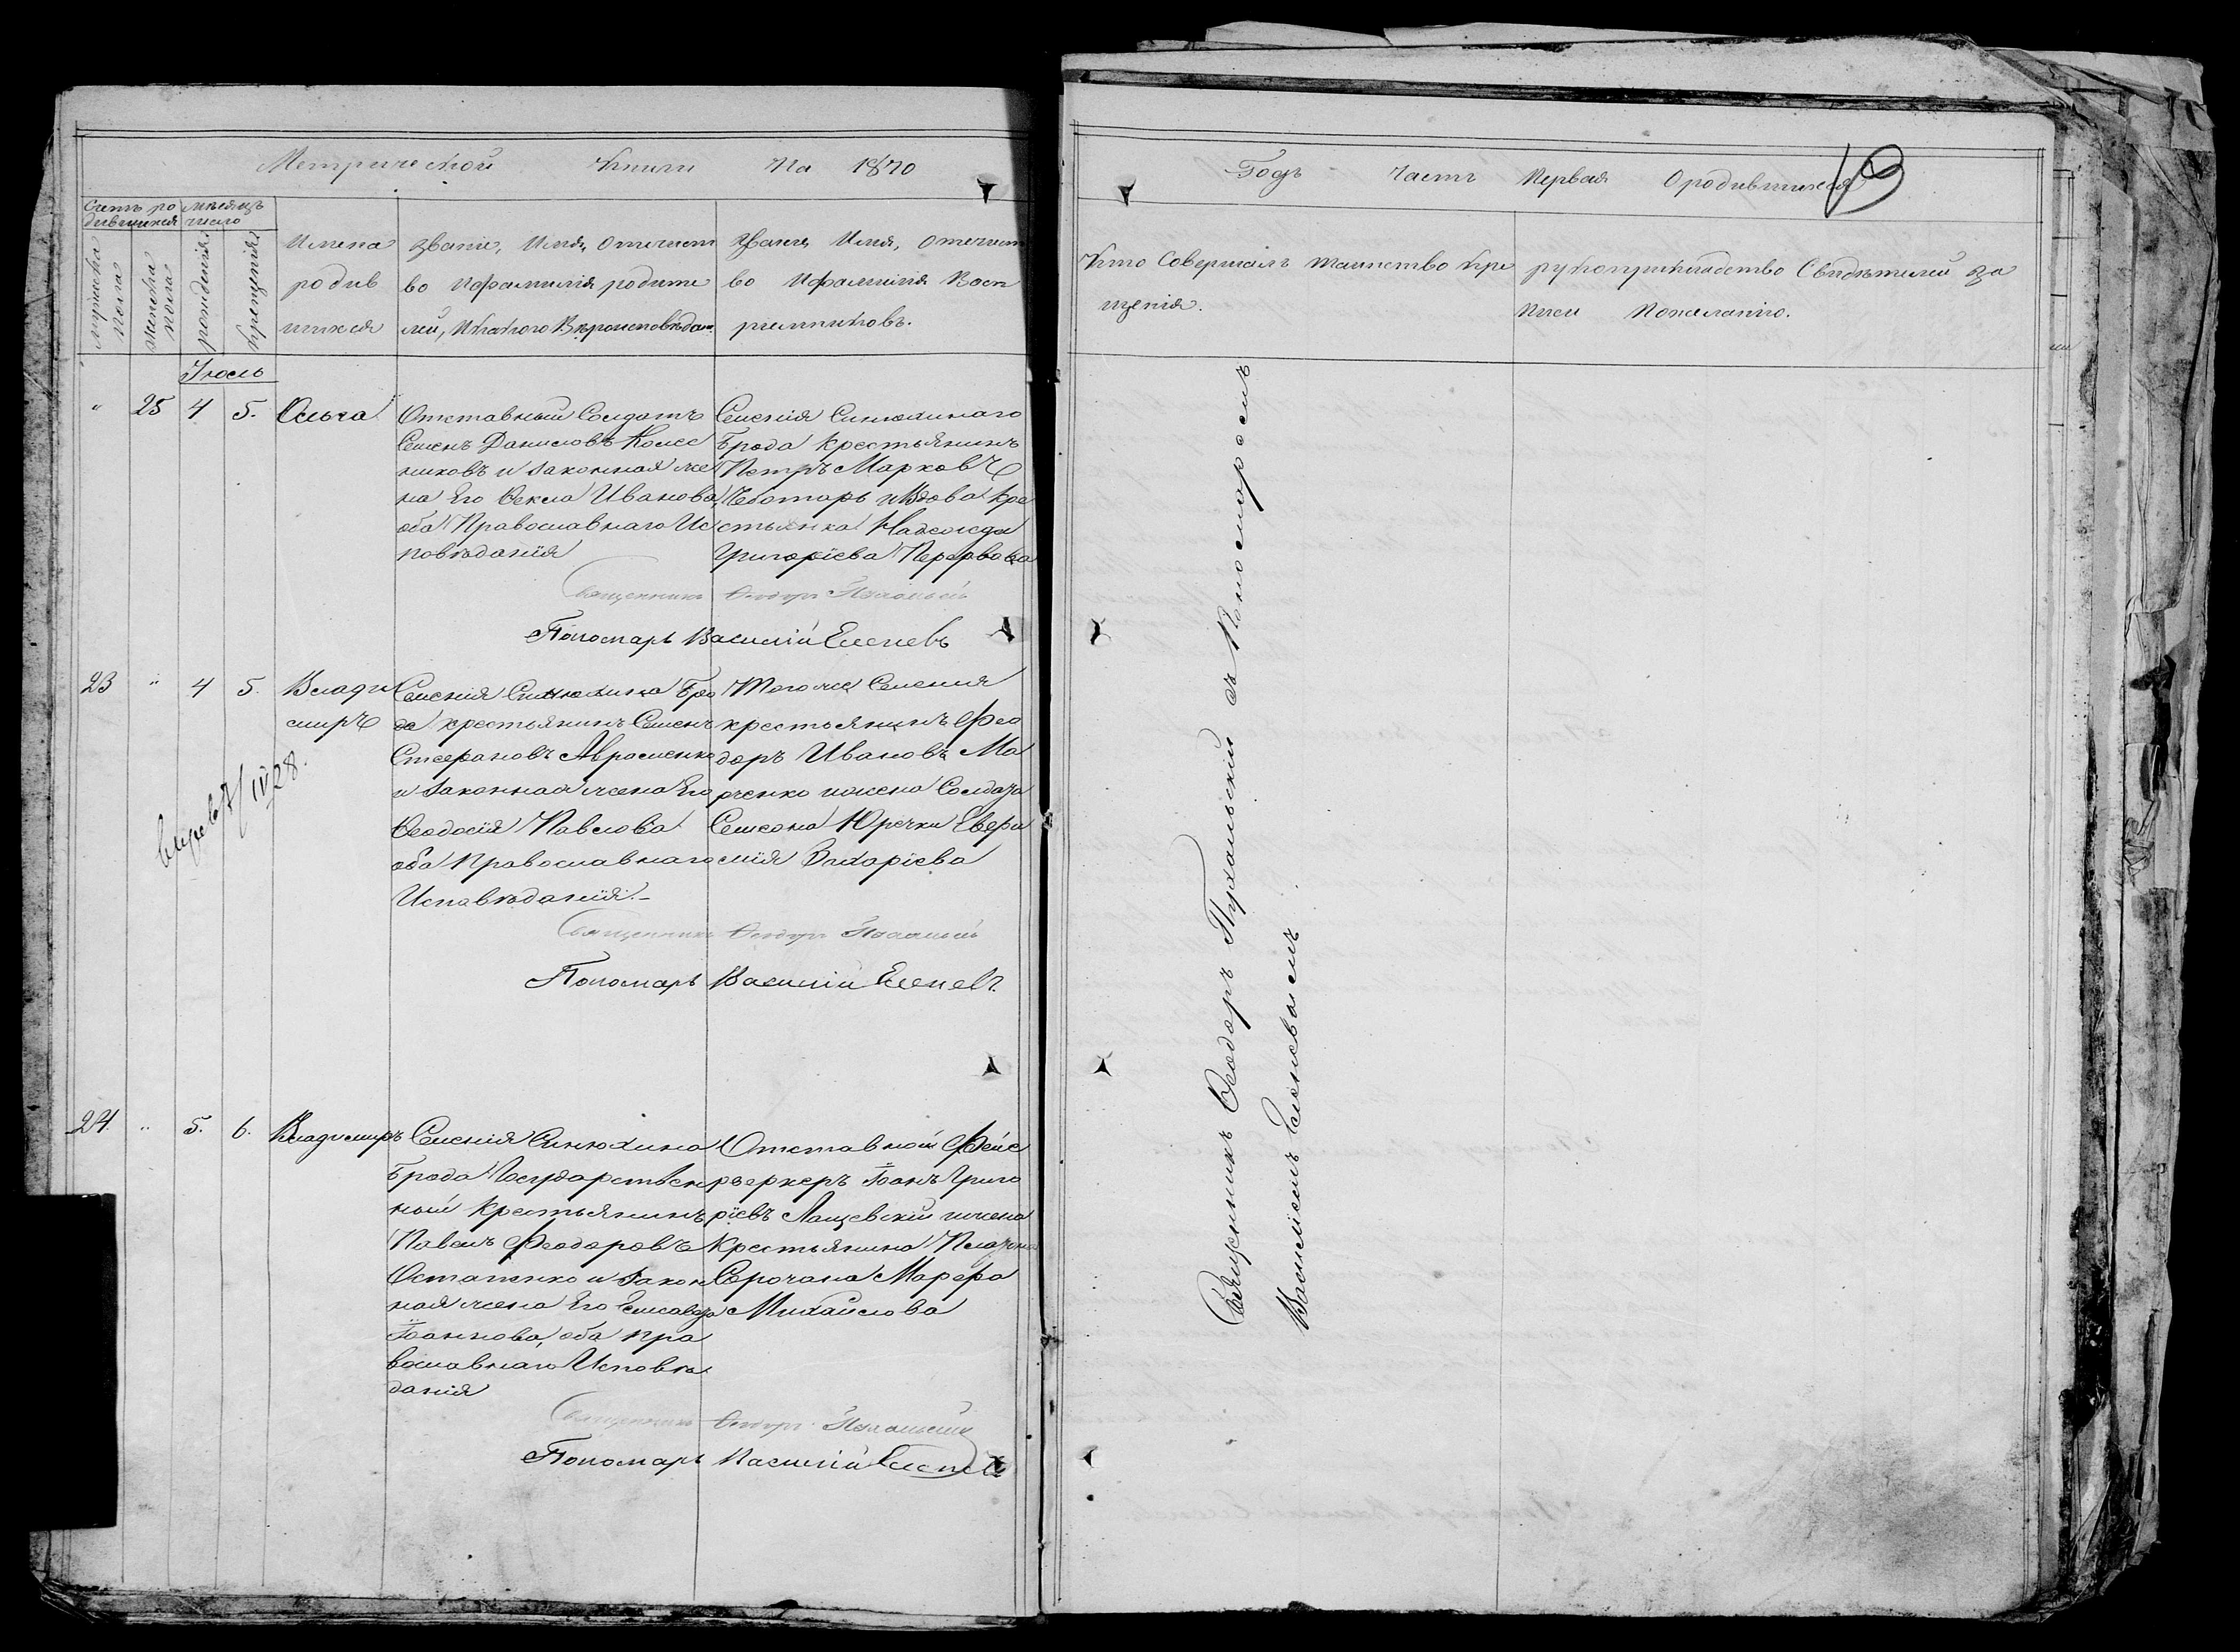 Метрической Книги На 1870
Годъ Часть Первая О родившихся
19
Счетъ ро
дившихся
мѣсяцъ
число
мужеска
пола
женска
пола
рожденія
крещенія
Имена
родив
шихся
Званіе, Имя, Отечест
во и фамилія родите
лей, и какого Вѣроисповѣдан.
Званіе, Имя, Отечест
во и фамилія Восп
ріемниковъ.
Кто Совершалъ таинство Кре
щенія.
рукоприкладство Свидѣтелей за
писи по желанію.
Іюль
" 25 4 5. Ольга
Отставный Солдатъ
Семенъ Даниловъ Колес
никовъ и законная же
на Его Ѳекла Иванова,
оба Православнаго Ис
повѣданія
Селенія Синюхинаго
Брода крестьянинъ
Петръ Марковъ
Чеботарь и Вдова Кре
стьянка Надежда
Григоріева
Священникъ Ѳеодоръ
Пономарь Василій Еленевъ
23 " 4 5. Влади
миръ
Селенія Синюхина Бро
да крестьянинъ Семенъ
Стефановъ Авроменко
и законная жена Его
Ѳеодосія Павлова
оба Православнаго
Исповѣданія.
Того же Селенія
крестьянинъ Фео
доръ Ивановъ Ма
рченко и жена Солдата
Семена Юречки Евфи
мія Захаріева
IV/28.
Священникъ Ѳеодоръ
Пономарь Василій Еленевъ.
24. " 5. 6. Владимиръ
Селенія Синюхина
Брода Государствен
ный Крестьянинъ
Павелъ Феодоровъ
Остапенко и закон
ная жена Его Елисавета
Іоаннова, оба пра
вославнаго Исповѣ
данія
Отставной Фейе
рверкеръ Іоанъ Григо
ріевъ Лащевскій и жена
Крестьянина Платона
Сорочана Марфа
Михайлова
Священникъ Ѳеодоръ
Пономарь Василій Еленевъ
Священникъ Ѳеодоръ Пухальскій съ Пономаремъ
Василіемъ Еленевымъ.